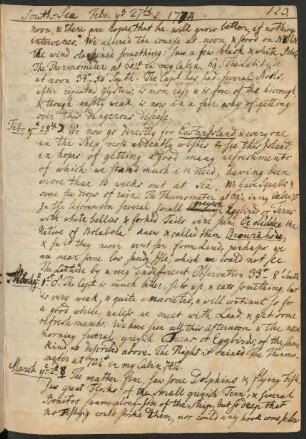 South-Sea Feby. ye 27th 1774 123
noon, & there are hopes that he will grow better, if nothing
intervenes. We altered the course at noon, & stood
the wind slackened something. Saw a few black & white
The Thermometer at in my cabin, 69. The Latitude
at noon 37°. South. The Capt. has had several Stools,
after repeated glysters, is now easy & is free of the hiccough
& though vastly weak is now in a fair way of getting
over this dangerous disease.
Feby ye 28th We now go directly for Easter Island & everyone
in the Ship most ardently wishes to see this Island
in hopes of getting a good many refreshments
of which we stand much in need, having been
more than 13 weeks out at Sea. We have Squalls &
some few drops of rain. The Thermometer at in my cabin
In the afternoon several Small grayish Eggbirds or Terns
with white bellies & forked tails were seen. the
Native of Bolabola knew & called them
& said they never went far from land, perhaps we
are near some low Island, which we could not see
The Latitude by a very indifferent Observation 33° South
March ye 1st The Capt. is much better, sits up & eats something, but
is very weak, & quite emaciated, & will continue so for
a good while, unless we meet with Land & get some
refreshments. We have seen all this afternoon & the next
morning several grayish Terns or Eggbirds, of the same
kind as reported above. The Night it rained the Thermometer
at in my cabin
March ye 2d The weather fine, saw some Dolphins & flying Fish,
saw great Flocks of the small grayish Tern, & several
Bonitos swam along side of the Ship, but so deep that
no fishgig could strike them, nor could any hook